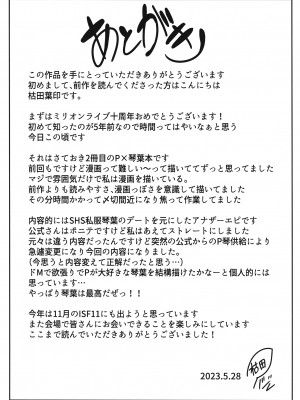 あとがき
この作品を手にとっていただきありがとうございます
初めまして、前作を読んでくださった方はこんにちは
枯田葉印です。
まずはミリオンライブ十周年おめでとうございます！
初めて知ったのが5年前なので時間ってはやいなぁと思う
今日この頃です
それはさておき2冊目のP×琴葉本です
前回もですけど漫画って難しい～って描いててずっと思ってました
マジで雰囲気だけで私は漫画を描いている。
前作よりも読みやすさ、漫画っぽさを意識して描いてました
その分時間かかって〆切間近になり焦って作業してました
内容的にはSHS私服琴葉のデートを元にしたアナザーエピです
公式さんはポニテですけど私はあえてストレートにしました
元々は違う内容だったんですけど突然の公式からのP琴供給により
急遽変更になり今回の内容になりました。
（今思うと内容変えて正解だったと思う…）
ドMで欲張りでPが大好きな琴葉を結構描けたかなーと個人的には
思っています…
やっぱり琴葉は最高だぜっ！！
今年は11月のISF11にも出ようと思っています
また会場で皆さんにお会いできることを楽しみにしています
ここまで読んでいただきありがとうございました！
2023.5.28
枯田